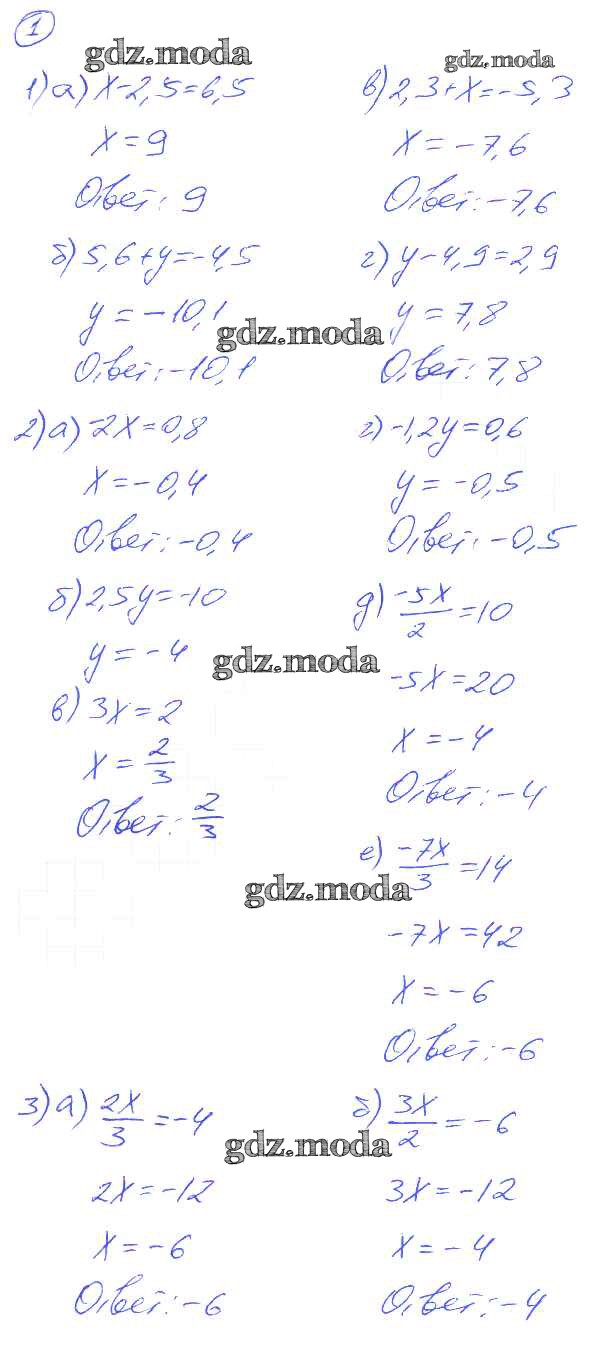 1
gdz.moda
gdz.moda
1) а) x-2,5=6,5
x=9
Ответ: 9
б) 5,6+y=-4,5
y=-10,1
gdz.moda
Ответ: -10,1
в) 2,3+x=-5,3
x=-7,6
Ответ: -7,6
г) y-4,9=2,9
y=7,8
Ответ: 7,8
2) а) -2x=0,8
x=-0,4
Ответ: -0,4
б) 2,5y=-10
y=-4
gdz.moda
в) 3x=2
x=2/3
Ответ: 2/3
г) -1,2y=0,6
y=-0,5
Ответ: -0,5
д) -5x/2=10
-5x=20
x=-4
Ответ: -4
е) -7x/3=14
gdz.moda
-7x=42
x=-6
Ответ: -6
3) а) 2x/3=-4
gdz.moda
2x=-12
x=-6
Ответ: -6
б) 3x/2=-6
3x=-12
x=-4
Ответ: -4